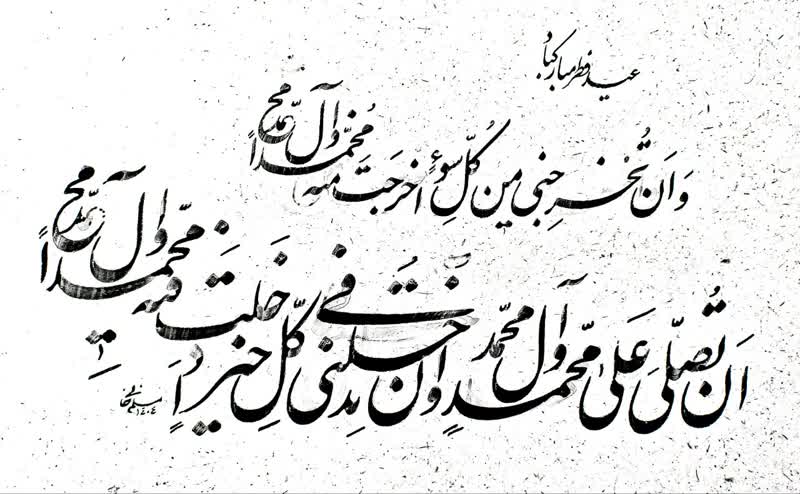 عید فطر مبارکباد
وَاَن تُخرِجَنی مِن کُلِّ سوُءٍ اَخرَجتَ مِنهُ مُحَمَّداً وَآلَ مُحَمَّد
اَن تُصَلّیَ عَلی مُحَمَّدٍ وَآلِ مُحَمَّد وَاَن تُدخِلَنی فی کُلِّ خَیرٍ اَدخَلتَ فیهِ مُحَمَّداً وَآلَ مُحَمَّد
۱۴۰۴